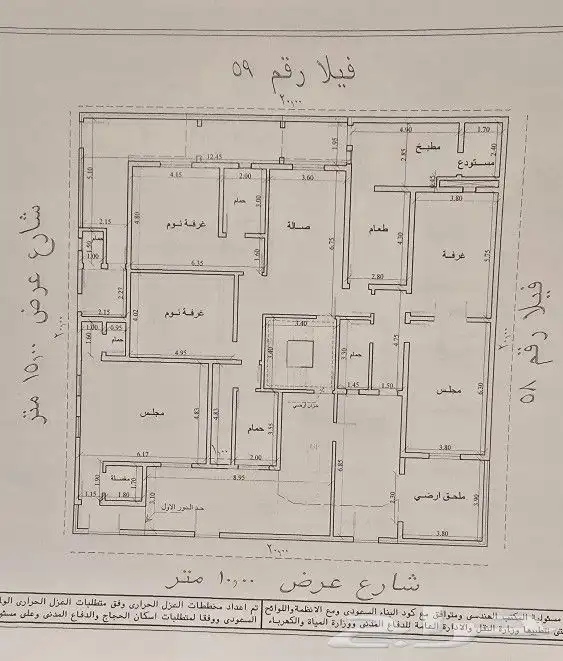 فيلا رقم ٥٩
٢٠,٠٠
4.90
1.70
مطبخ
2.85
2.40
مستودع
1.95
12.45
5.10
4.15
2.00
3.60
0.45
3.80
حمام
3.00
4.80
غرفة نوم
صالة
طعام
4.30
غرفة
5.75
2.15
6.75
حمام
1.50
1.00
1.60
6.35
2.80
2.27
2.15
4.02
غرفة نوم
1.00
0.95
1.60
حمام
4.95
3.40
3.40
حمام
3.30
4.25
1.45
1.50
خزان ارضي
مجلس
6.30
مجلس
4.83
4.83
حمام
3.55
3.80
6.17
2.00
8.95
6.85
1.90
مغسلة
1.70
1.15
1.80
3.10
حد الدور الاول
2.30
ملحق ارضي
3.90
3.80
٢٠,٠٠
شارع عرض ١٥,٠٠ متر
٢٠,٠٠
فيلا رقم ٥٨
٢٠,٠٠
شارع عرض ١٠,٠٠ متر
تم اعداد مخططات العزل الحراري وفق متطلبات العزل الحراري
السعودي ووفقا لمتطلبات اسكان الحجاج والدفاع المدني وعلى
مسئولية المكتب الهندسي ومتوافق مع كود البناء السعودي ومع الانظمة واللوائح
تطبيقها وزارة النقل والادارة العامة للدفاع المدني ووزارة المياة والكهرباء